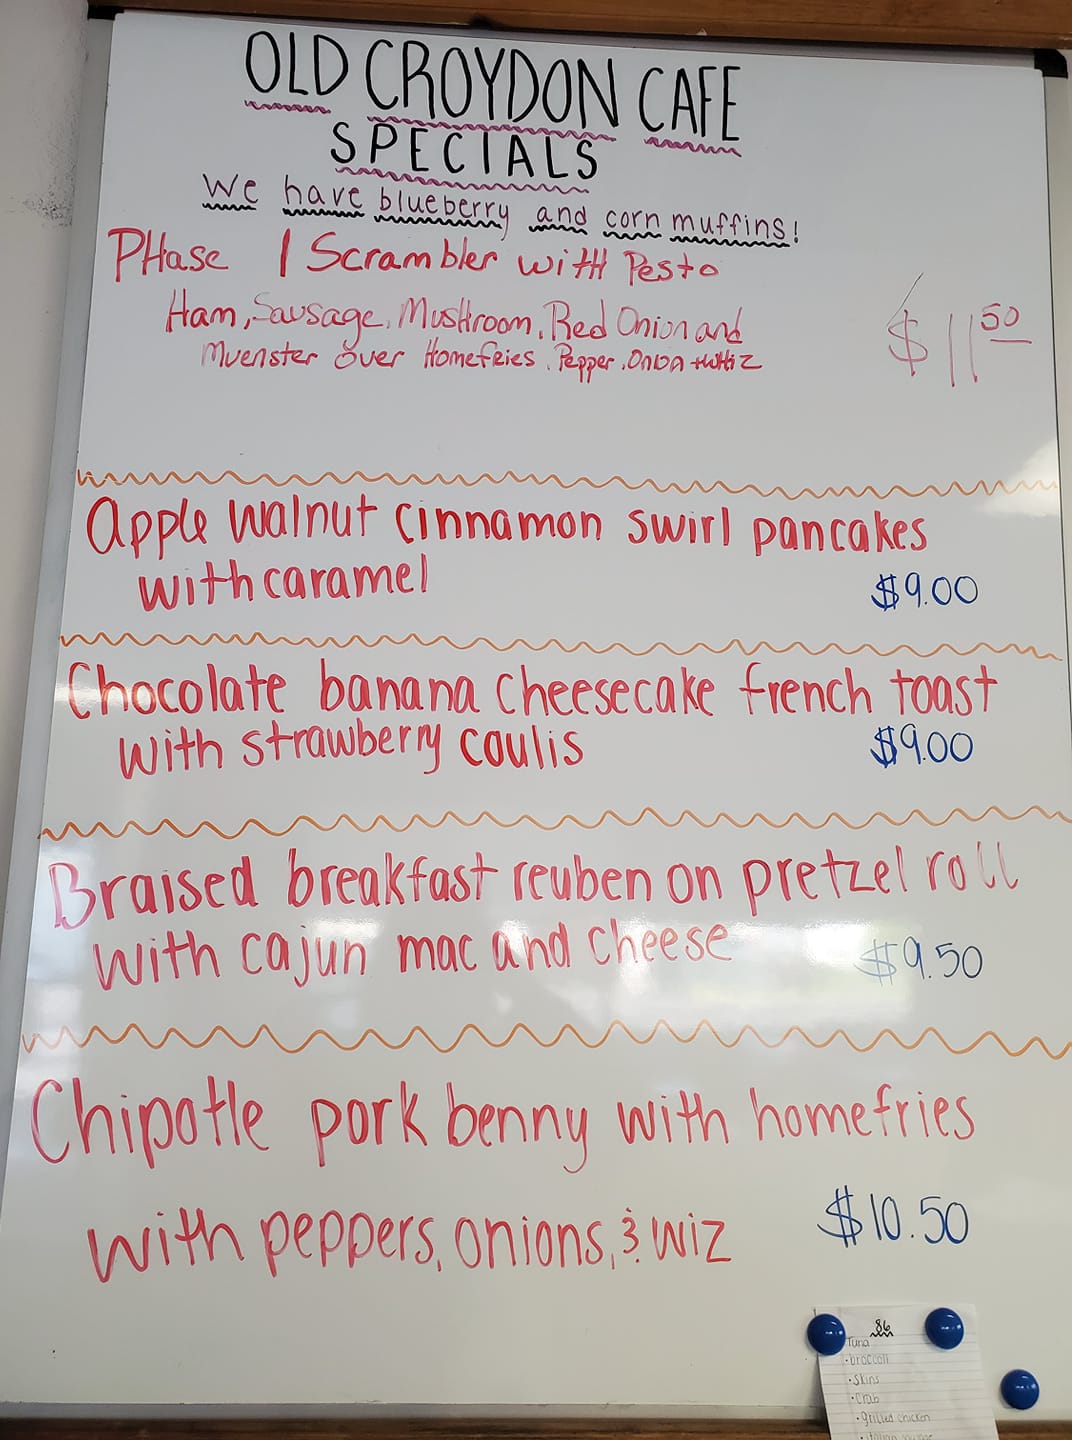 OLD CROYDON CAFE
SPECIALS
We have blueberry and corn muffins!
PHase 1 Scrambler with Pesto
Ham, Sausage, Mushroom, Red Onion and
Muenster over Homefries. Pepper, Onion +
$11.50
apple walnut cinnamon swirl pancakes
with caramel
$9.00
Chocolate banana cheesecake french toast
with strawberry coulis
$9.00
Braised breakfast reuben on pretzel roll
with cajun mac and cheese
$9.50
Chipotle pork benny with homefries
with peppers, onions, & wiz
$10.50
86
Tuna
·broccoli
·Skins
·Crab
·grilled chicken